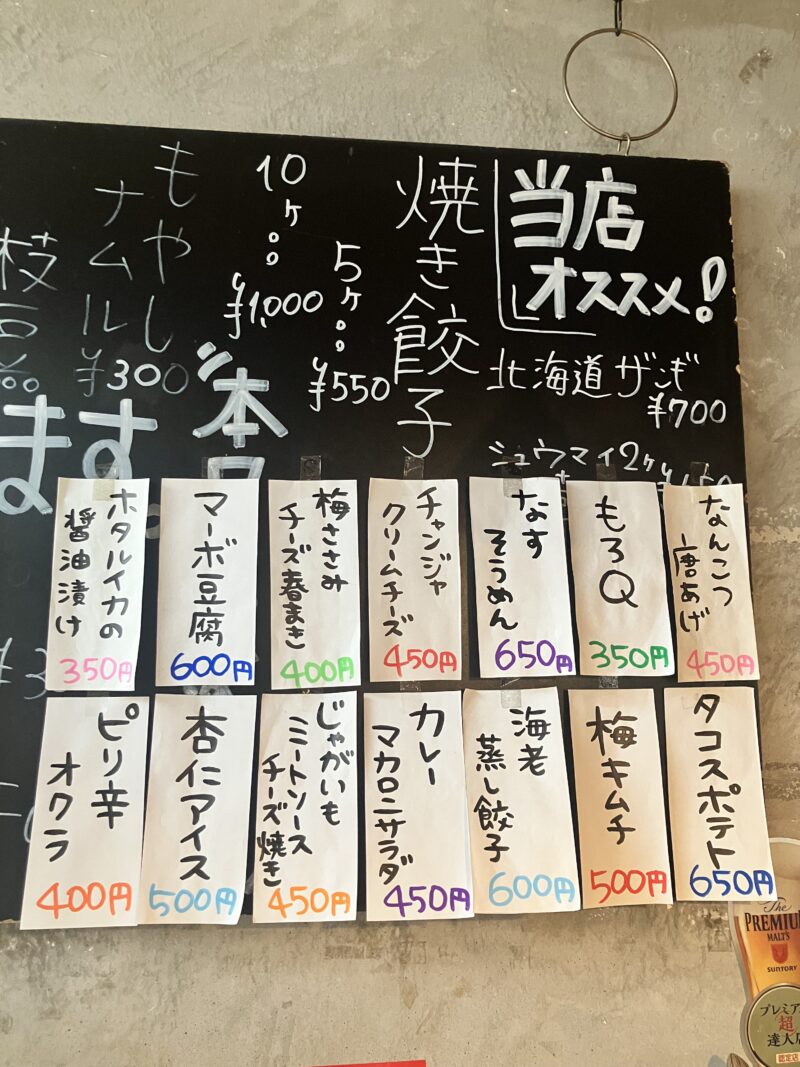 当店
オススメ!
北海道ザンギ
¥700
シュウマイ2ヶ
焼き餃子
5ヶ。。
¥550
10ヶ。。
¥1,000
もやし
ナムル
¥300
ます。
なんこつ
唐あげ
450円
もろQ
350円
なす
そうめん
650円
チャンジャ
クリームチーズ
450円
梅ささみ
チーズ春まき
400円
マーボ豆腐
600円
ホタルイカの
醤油漬け
350円
タコスポテト
650円
梅キムチ
500円
海老
蒸し餃子
600円
カレー
マカロニサラダ
450円
じゃがいも
ミートソース
チーズ焼き
450円
杏仁アイス
500円
ピリ辛
オクラ
400円
The
PREMIUM
MALT'S
SUNTORY
プレミア
超
達人店
認定店